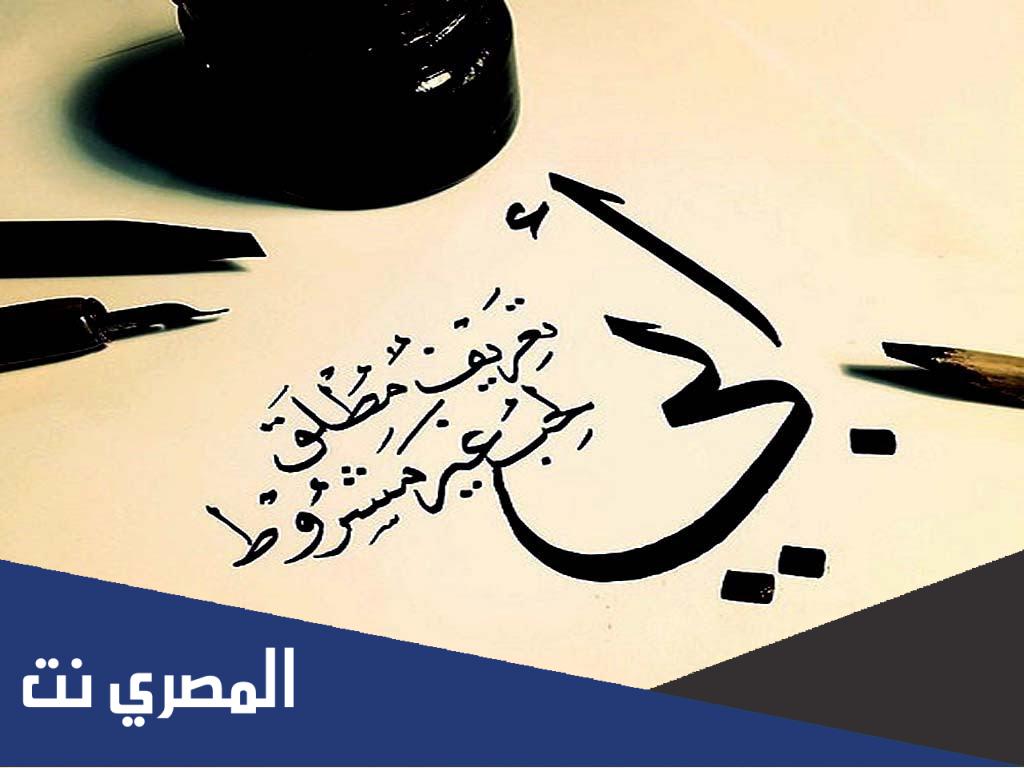 أبي
تعريف مطلق
لحب غير مشروط
المصري نت